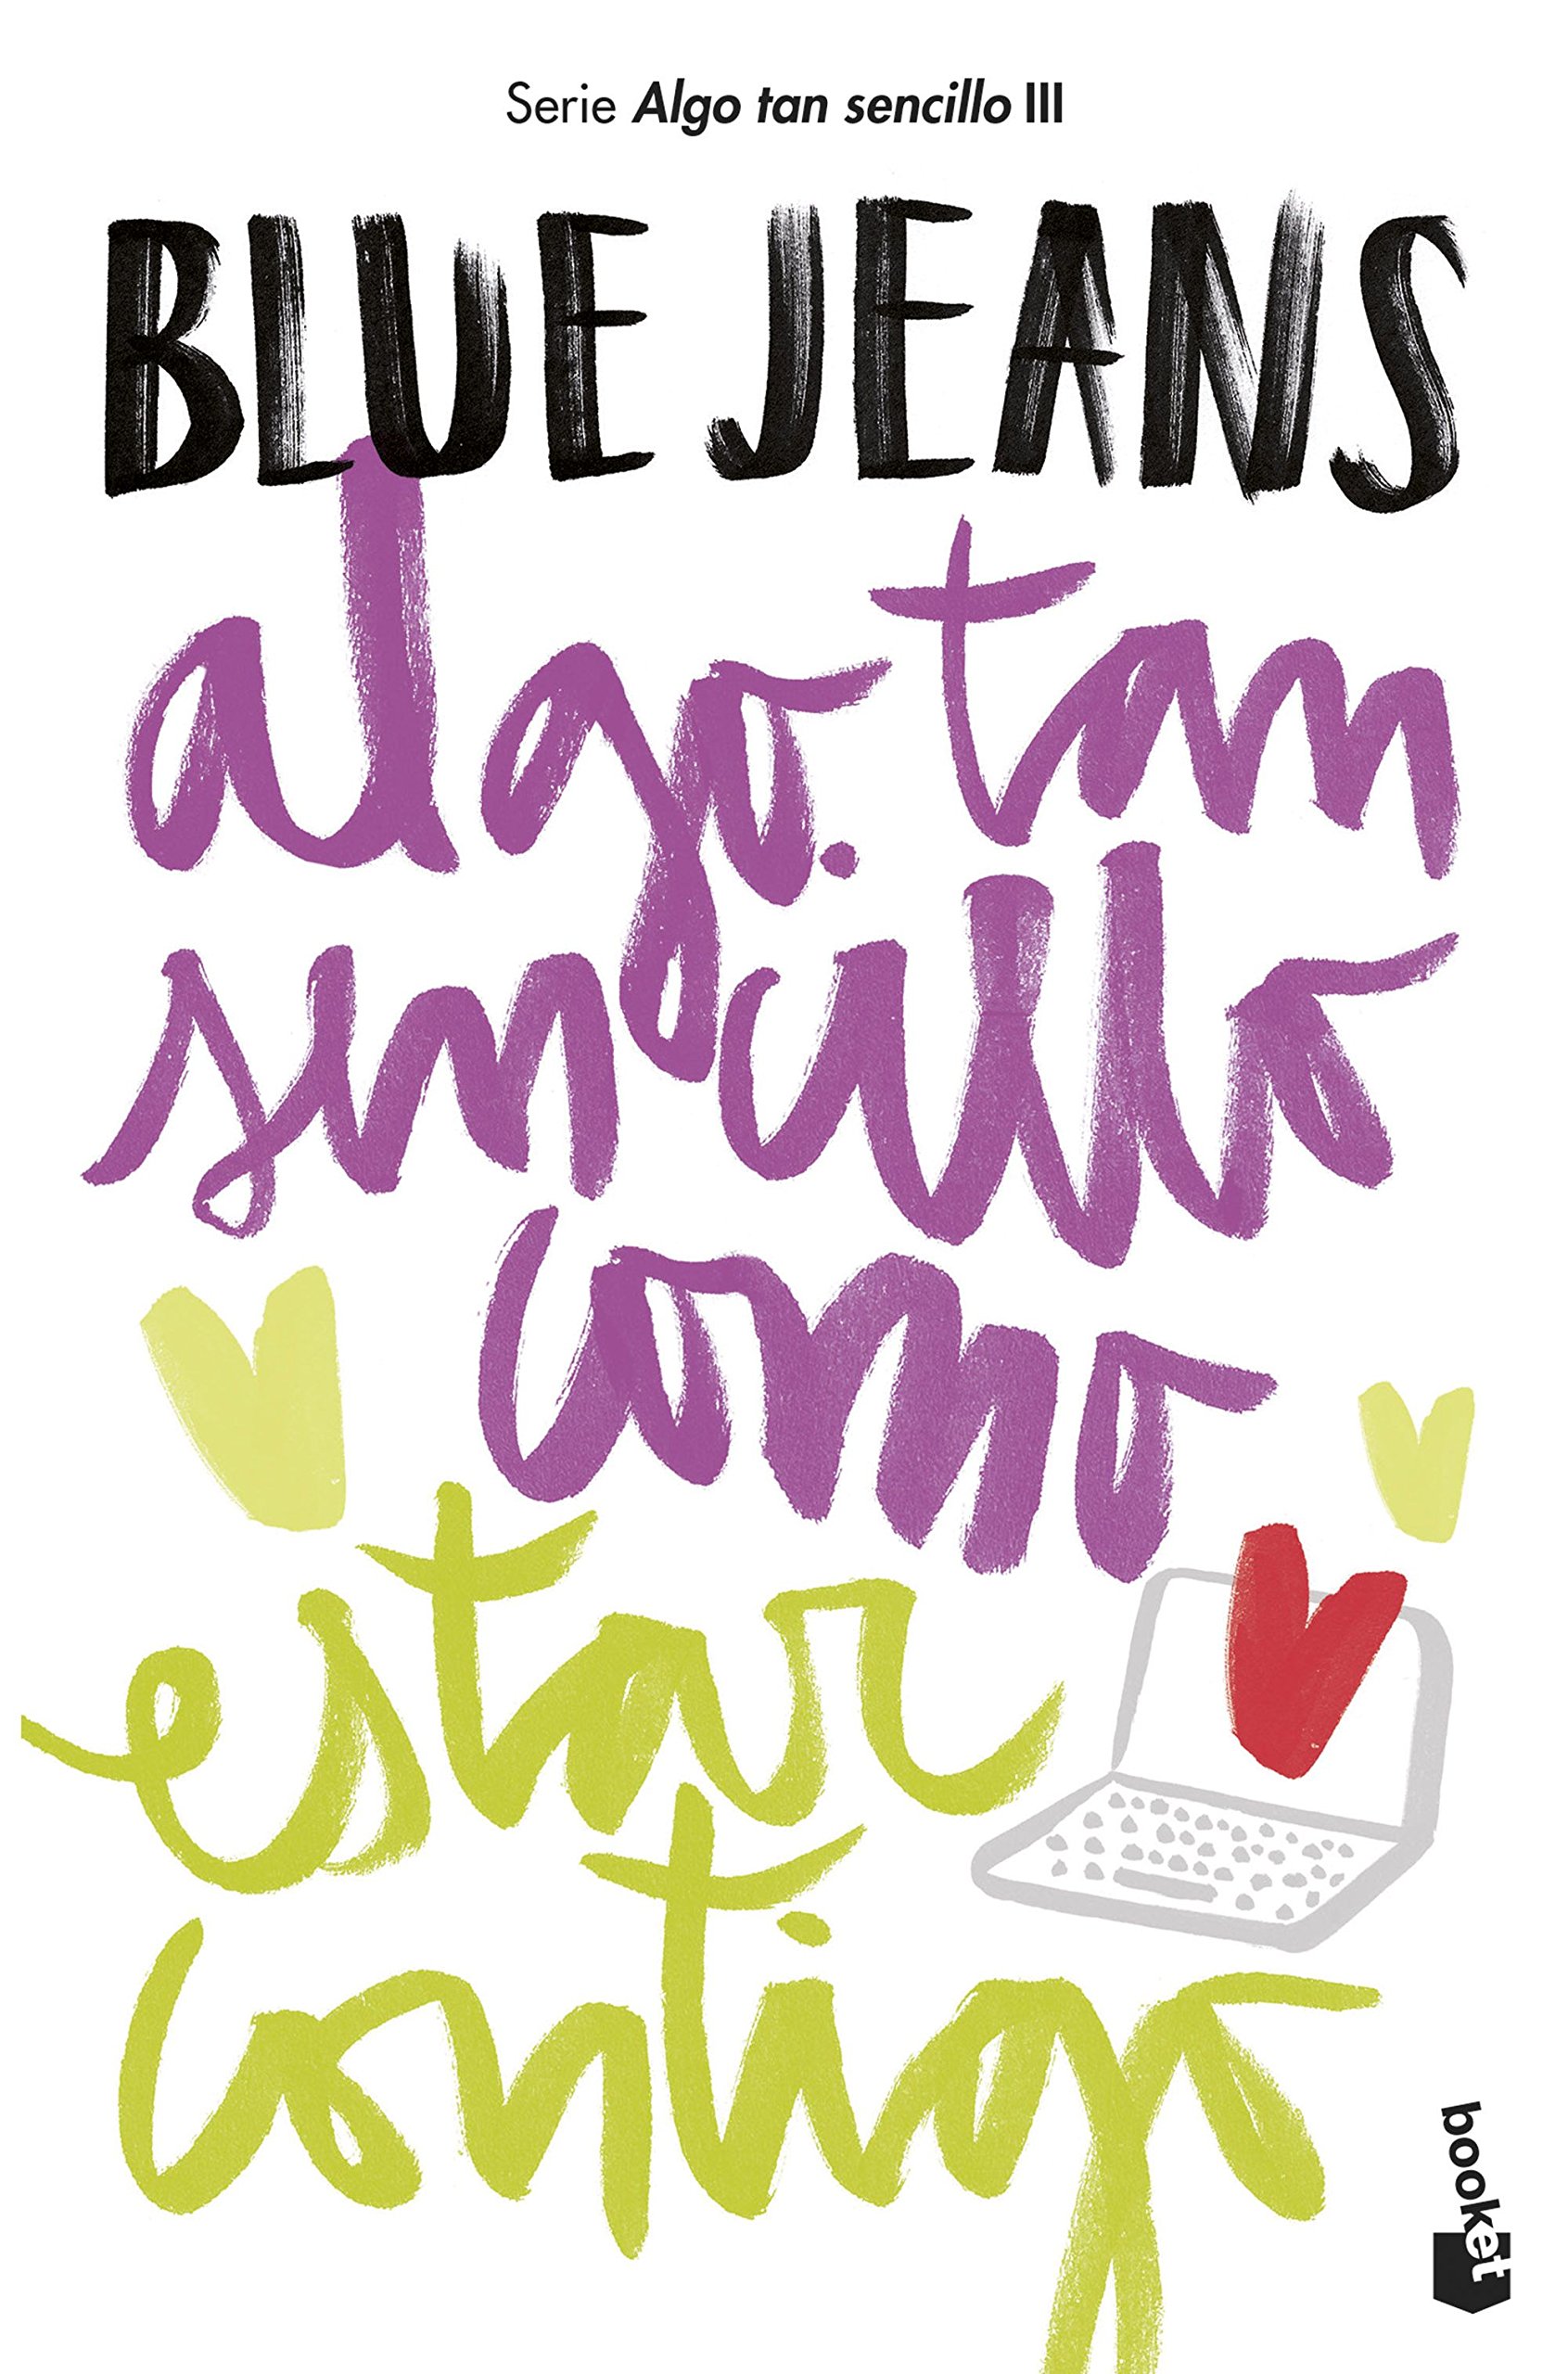 Serie Algo tan sencillo III
BLUE JEANS
algo tan
sencillo
como
estar
contigo
booket